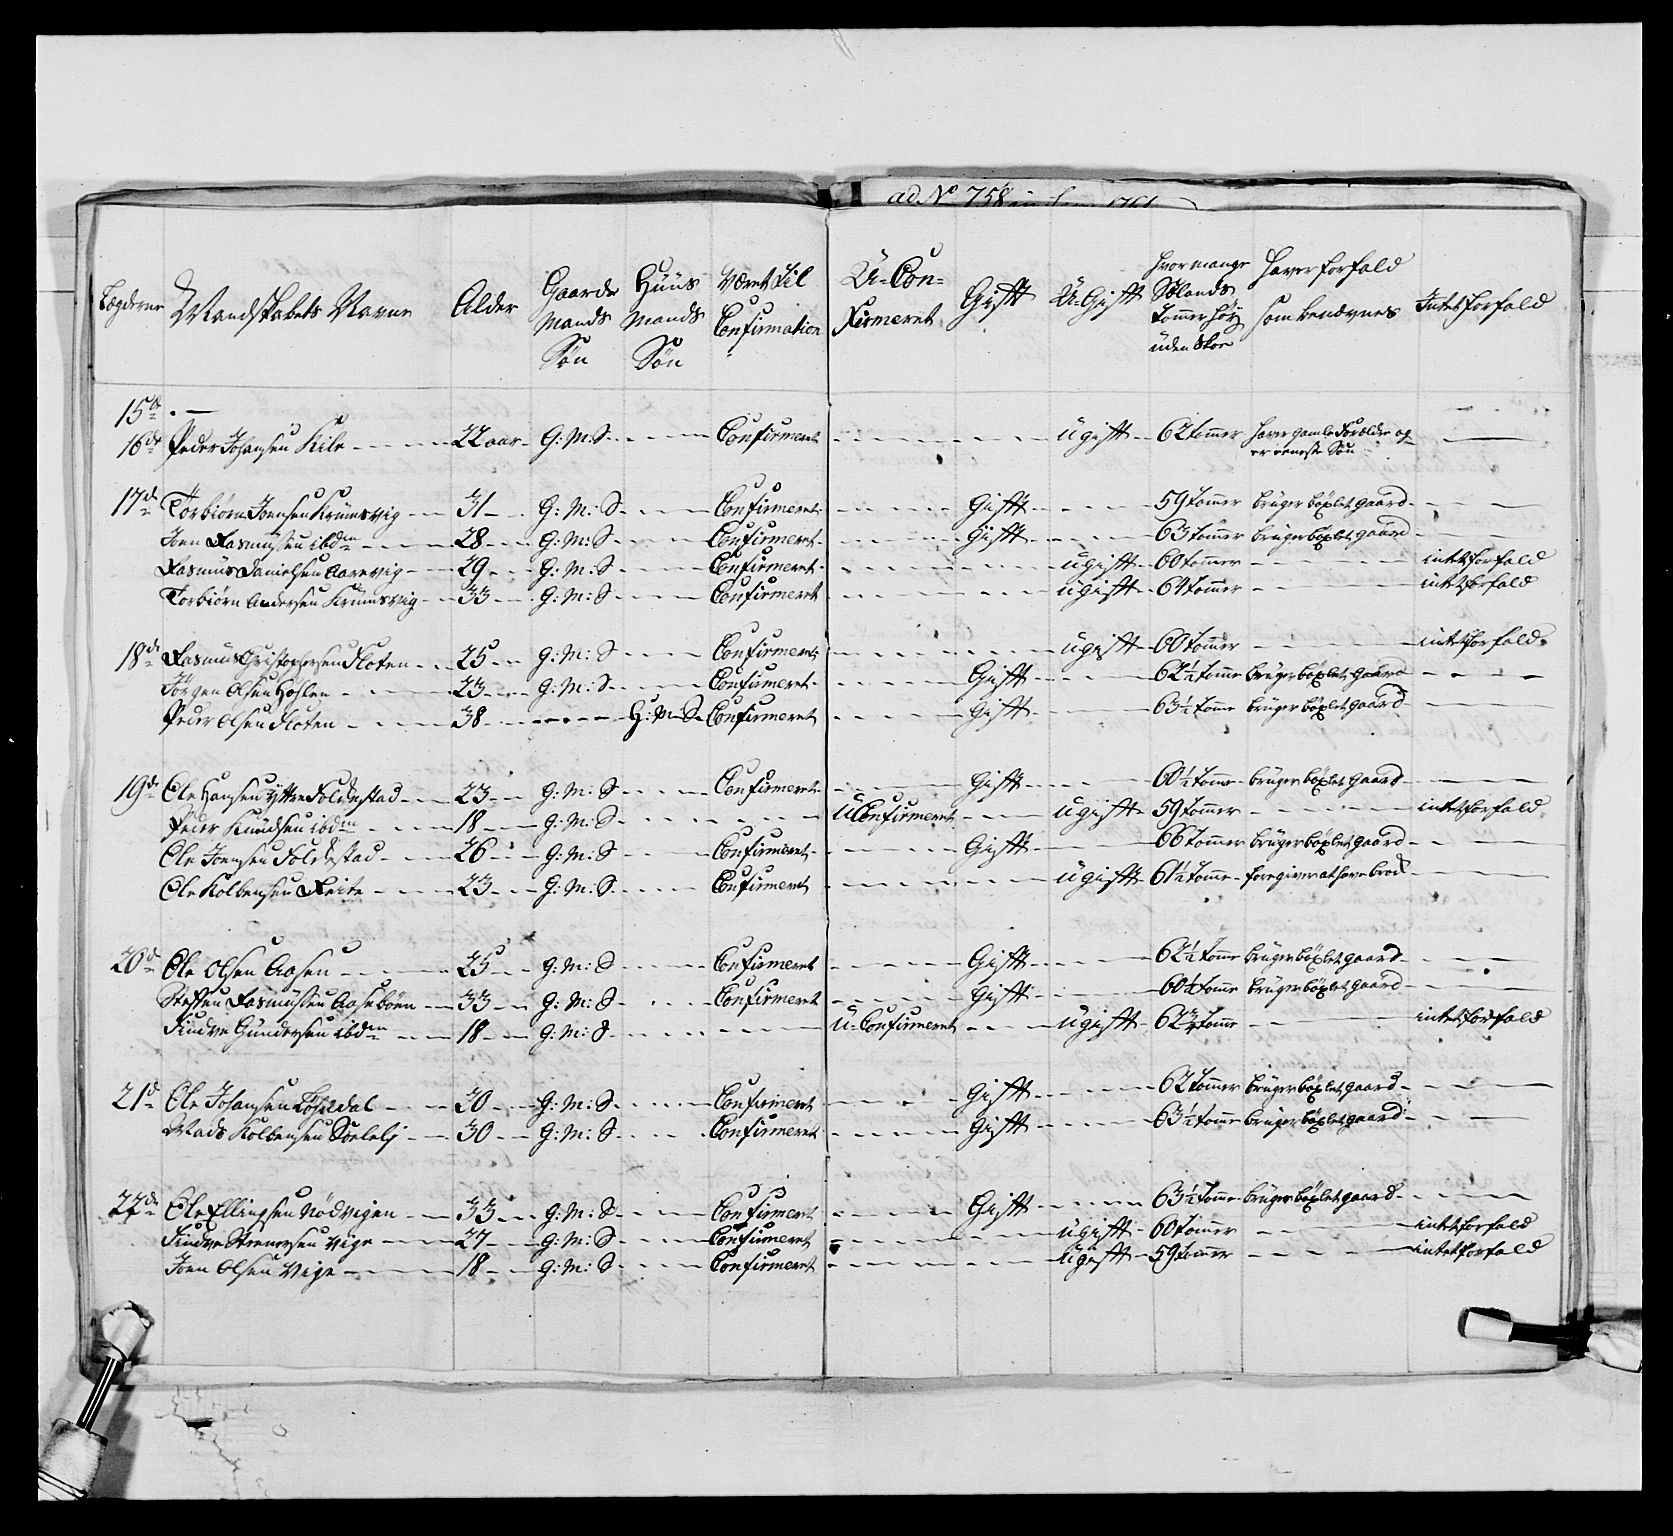 ad N° 758
Lægderne Mandskabets Navne Alder Gaards Mands Søn Huus Mands Søn Været Til Confirmation U-Confirmeret Gift U-Gift hvor mange Sælands Tommer høy uden Skoe haver forfald som benævnes Intet forfald
15de . —
16de Peder Johansen Kile 22 aar G: M: S Confirmeret ugift 62 tommer haver gamle Forældre og
er eeneste Søn
17de Torbiørn Joensen Krumsvig 31 G: M: S Confirmeret Gift 59 tommer bruger böxlet gaard
Joen Rasmusen ibdm 28 G: M: S Confirmeret Gift 63 tommer bruger böxlet gaard
Rasmus Danielsen Aarevig 29 G: M: S Confirmeret ugift 60 tommer intet forfald
Torbiørn Andersen Krumsvig 33 G: M: S Confirmeret ugift 64 tommer intet forfald
18de Rasmus Christophersen Floten 25 G: M: S Confirmeret ugift 60 tommer intet forfald
Jörgen Olsen Hoslen 23 G: M: S Confirmeret Gift 62½ tomme bruger böxlet gaard
Peder Olsen Floten 38 H: M: S Confirmeret Gift 63½ tomme bruger böxlet gaard
19de Ole Hansen Yttre Foldestad 23 G: M: S Confirmeret Gift 60½ tomme bruger böxlet gaard
Peder Knudsen ibdm 18 G: M: S UConfirmeret ugift 59 tommer intet forfald
Ole Joensen Foldestad 26 G: M: S Confirmeret Gift 66 tommer bruger böxlet gaard
Ole Kolbensen Reite 23 G: M: S Confirmeret ugift 61½ tomme foregiver at have brok
20de Ole Olsen Aasen 25 G: M: S Confirmeret Gift 62½ tomme bruger böxlet gaard
Steffen Rasmusen Aasebøen 33 G: M: S Confirmeret Gift 60½ tomme bruger böxlet gaard
Findve Gundersen ibdm 18 G: M: S U-Confirmeret ugift 62¾ tomme intet forfald
21de Ole Johansen 20 G: M: S Confirmeret Gift 62 tommer bruger böxlet gaard
Mads Kolbensen 30 G: M: S Confirmeret Gift 63½ tomme bruger böxlet gaard
22de Ole Ellingsen Nödvigen 33 G: M: S Confirmeret Gift 63½ tomme bruger böxlet gaard
Findve Steenersen Vige 27 G: M: S Confirmeret ugift 60 tommer intet forfald
Joen Olsen Vige 18 G: M: S Confirmeret ugift 59 tommer intet forfald